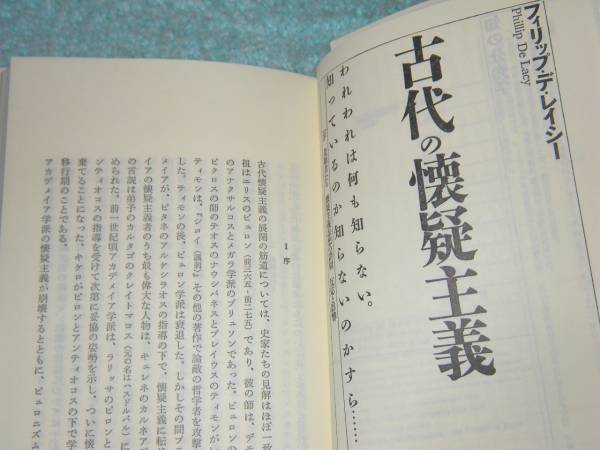 フィリップ・デ・レイシー
Phillip De Lacy
古代の懐疑主義
われわれは何も知らない。
知っているのか知らないのかすら……
I 序
古代懐疑主義の展開の筋道については、史家たちの見解はほぼ一致
祖はエリスのピュロン(前三六五―前二七五)であり、彼の師は、デモ
のアナクサルコスとメガラ学派のブリュソンであった。ピュロンの
ピクロスの師のテオスのナウシパネスとプレイウスのティモンがい
ティモンは、『シロイ(諷刺)』その他の著作で論敵の哲学者を攻撃
した。ティモンの後、ピュロン学派は衰退した。しかしその間プラ
メイアが、ピタネのアルケシラオスの指導の下で、懐疑主義に転
イアの懐疑主義者のうち最も偉大な人物は、キュレネのカルネアデ
の言説は弟子のカルタゴのクレイトマコス(元の名はハスドルバル)に
められた。前一世紀頃アカデメイア学派は、ラリッサのピロンと
ンティオコスの指導を受けて次第に妥協の姿勢を示し、ついに懐
棄てることになった。キケロがピロンとアンティオコスの下で学
移行期のことである。
アカデメイア学派の懐疑主義が崩壊するとともに、ピュロニズム